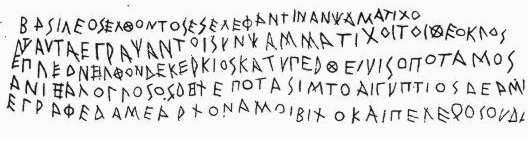 ΒΑΣΙΛΕΟΣΕΛΘΟΝΤΟΣΕΣΕΛΕΦΑΝΤΙΝΑΝΨΑΜΑΤΙΧΟ
ΤΑΥΤΑΕΓΡΑΨΑΝΤΟΙΣΥΝΨΑΜΜΑΤΙΧΟΙΤΟΙΘΕΟΚΛΟΣ
ΕΠΛΕΟΝΗΛΘΟΝΔΕΚΕΡΚΙΟΣΚΑΤΥΠΕΡΘΕΥΙΣΟΠΟΤΑΜΟΣ
ΑΝΙΗΑΛΟΓΛΟΣΟΣΔΗΧΕΠΟΤΑΣΙΜΤΟΑΙΓΥΠΤΙΟΣΔΕΑΜ
ΕΓΡΑΦΕΔΑΜΕΑΡΧΟΝΑΜΟΙΒΙΧΟΚΑΙΠΕΛΕϘΟΣΟΥΔΑ